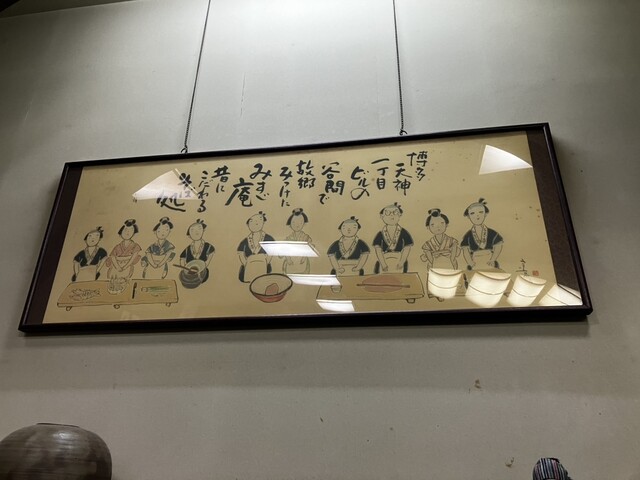 博多
天神
一丁目
ビルの
谷間で
故郷
みつけに
みすゞ
庵
昔に
こだわる
そば
処